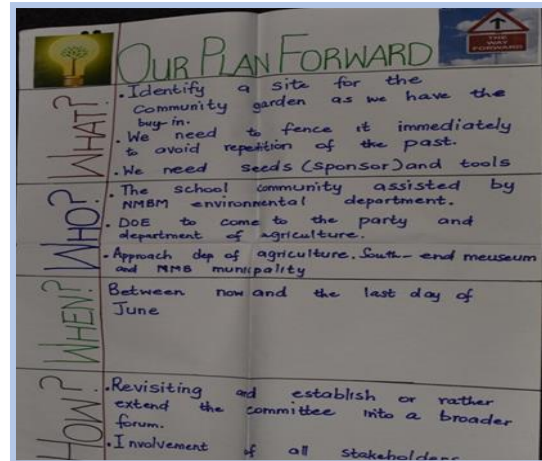 OUR PLAN FORWARD
THE WAY FORWARD
WHAT?
. Identify a site for the
Community garden as we have the
buy-in.
. We need to fence it immediately
to avoid repetition of the past.
. We need seeds (sponsor) and tools
WHO?
. The school community assisted by
NMBM environmental department.
. DOE to come to the party and
department of agriculture.
. Approach dep of agriculture. South-end meuseum
and NMB municipality
WHEN?
Between now and the last day of
June
HOW?
. Revisiting and establish or rather
extend the committee into a broader
forum.
. Involvement of all stakeholders